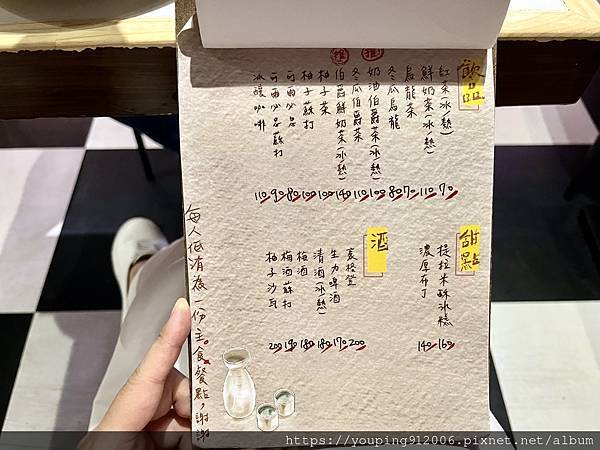 飲品
紅茶(冰/熱) 70
鮮奶茶(冰/熱) 110
烏龍茶 70
冬瓜烏龍 80
推 奶酒伯爵茶(冰/熱) 100
冬瓜伯爵茶 110
推 伯爵鮮奶茶(冰/熱) 140
柚子茶 100
柚子蘇打 100
可爾必思 80
可爾必思蘇打 90
冰釀咖啡 110
甜點
提拉米酥冰糕 160
濃厚布丁 140
酒
麦格登 200
生力啤酒 170
清酒(冰/熱) 180
梅酒 180
梅酒蘇打 190
柚子沙瓦 200
每人低消為一份主食餐點，謝謝
https://youping912006.pixnet.net/album